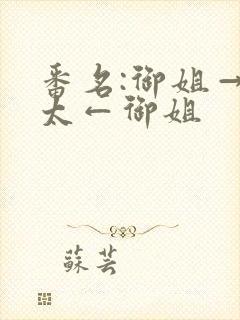 番名:御姐→
太←御姐
蘇芸